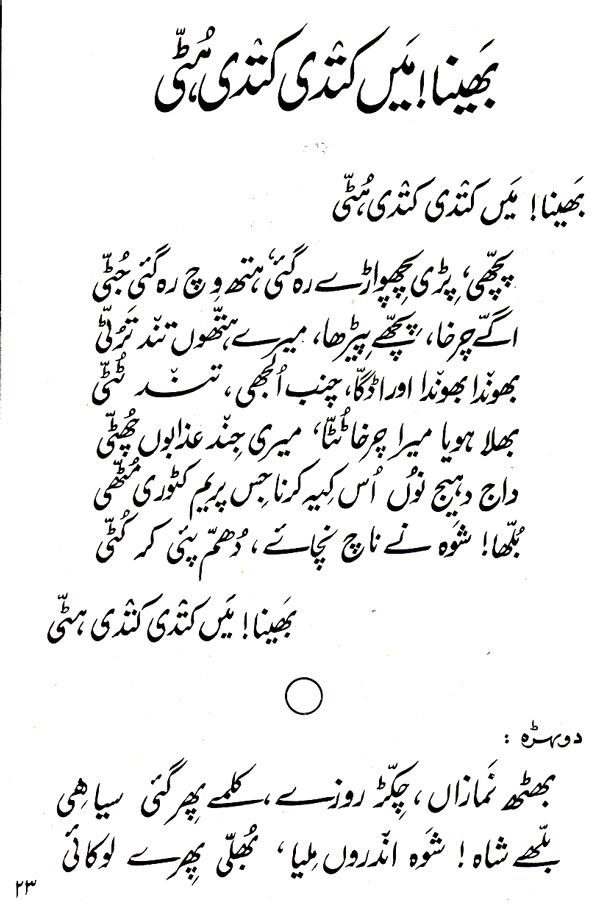 بَھینا! مَیں کتدی کتدی ہُٹّی
بَھینا! مَیں کتدی کتدی ہُٹّی
پچّھی، پِڑی پچھواڑے رہ گئی، ہتھ وِچ رہ گئی جُٹّی
اگّے چرخا، پِچّھے پِیڑھا، میرے ہتّھوں تند تَرُٹّی
بھوندا بھوندا اورا ڈگّا، چنب اُلجھی، تند ٹُٹّی
بھلا ہویا میرا چرخا ٹُٹّا، میری جِند عذابوں چھُٹّی
داج دہیج نوُں اُس کیہ کرنا جِس پریم کٹوری مُٹّھی
بُلّھا! شَوہ نے ناچ نچائے، دُھمّ پئی کر کُٹّی
بَھینا! مَیں کتدی کتدی ہٹّی
دوہڑہ :
بھٹھ نَمازاں، چِکّڑ روزے، کلمے پِھر گئی سیاہی
بلّھے شاہ! شَوہ اندروں مِلیا، بُھلّی پِھرے لوکائی
۲۳